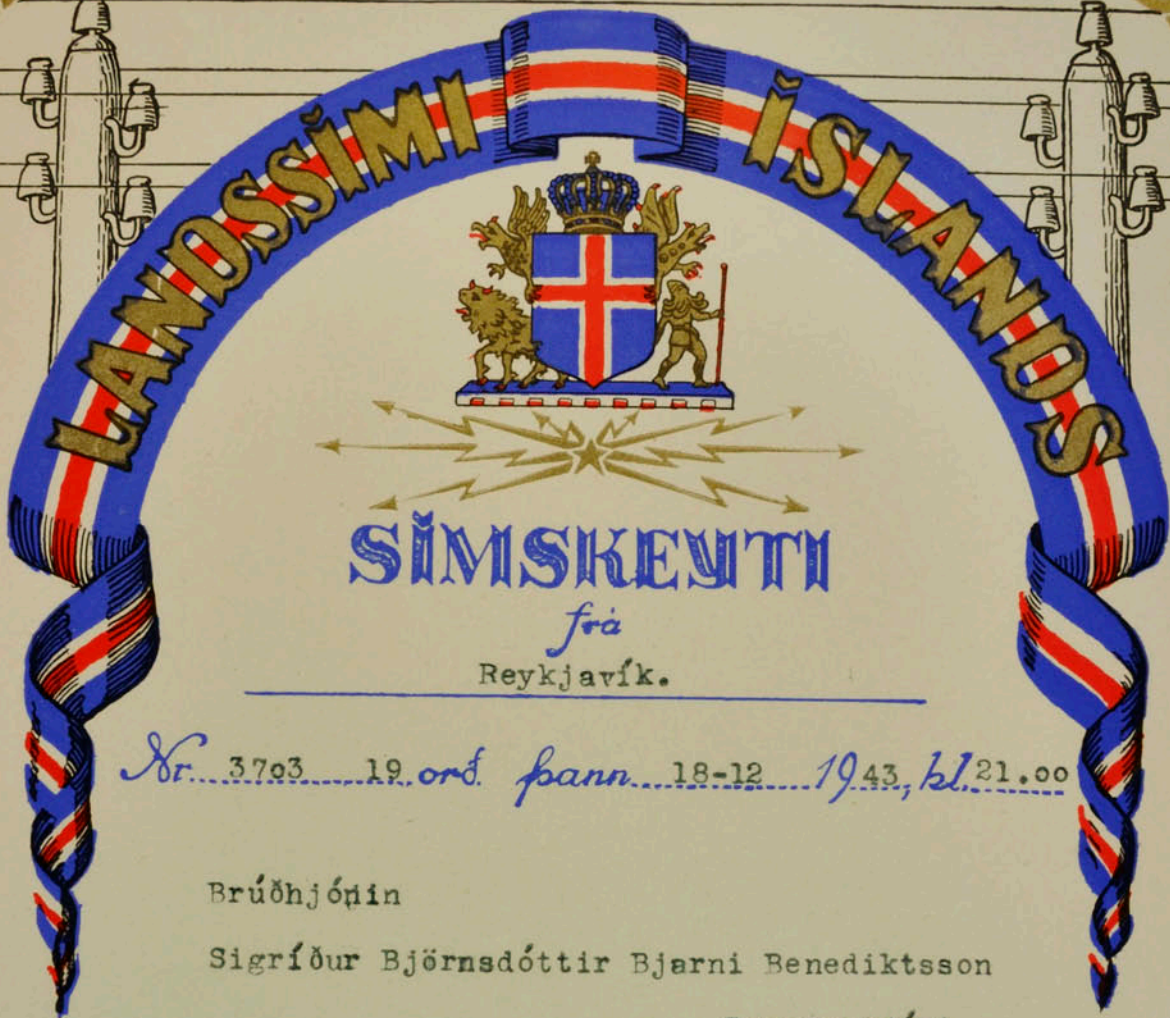 LANDSSÍMI ÍSLANDS
SÍMSKEYTI
frá
Reykjavík.
Nr. 3703 19 orð. þann 18-12 1943, kl. 21.00
Brúðhjónin
Sigríður Björnsdóttir Bjarni Benediktsson